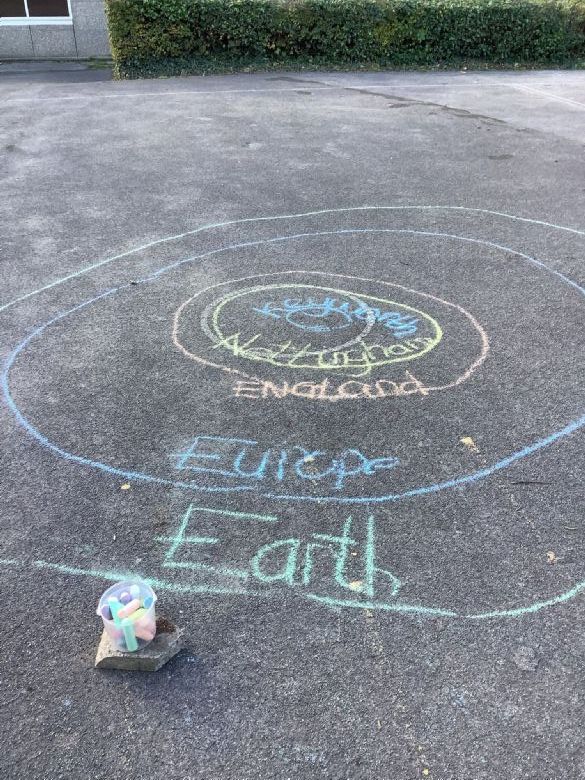 Keyworth
Nottingham
ENGLAND
Europe
Earth